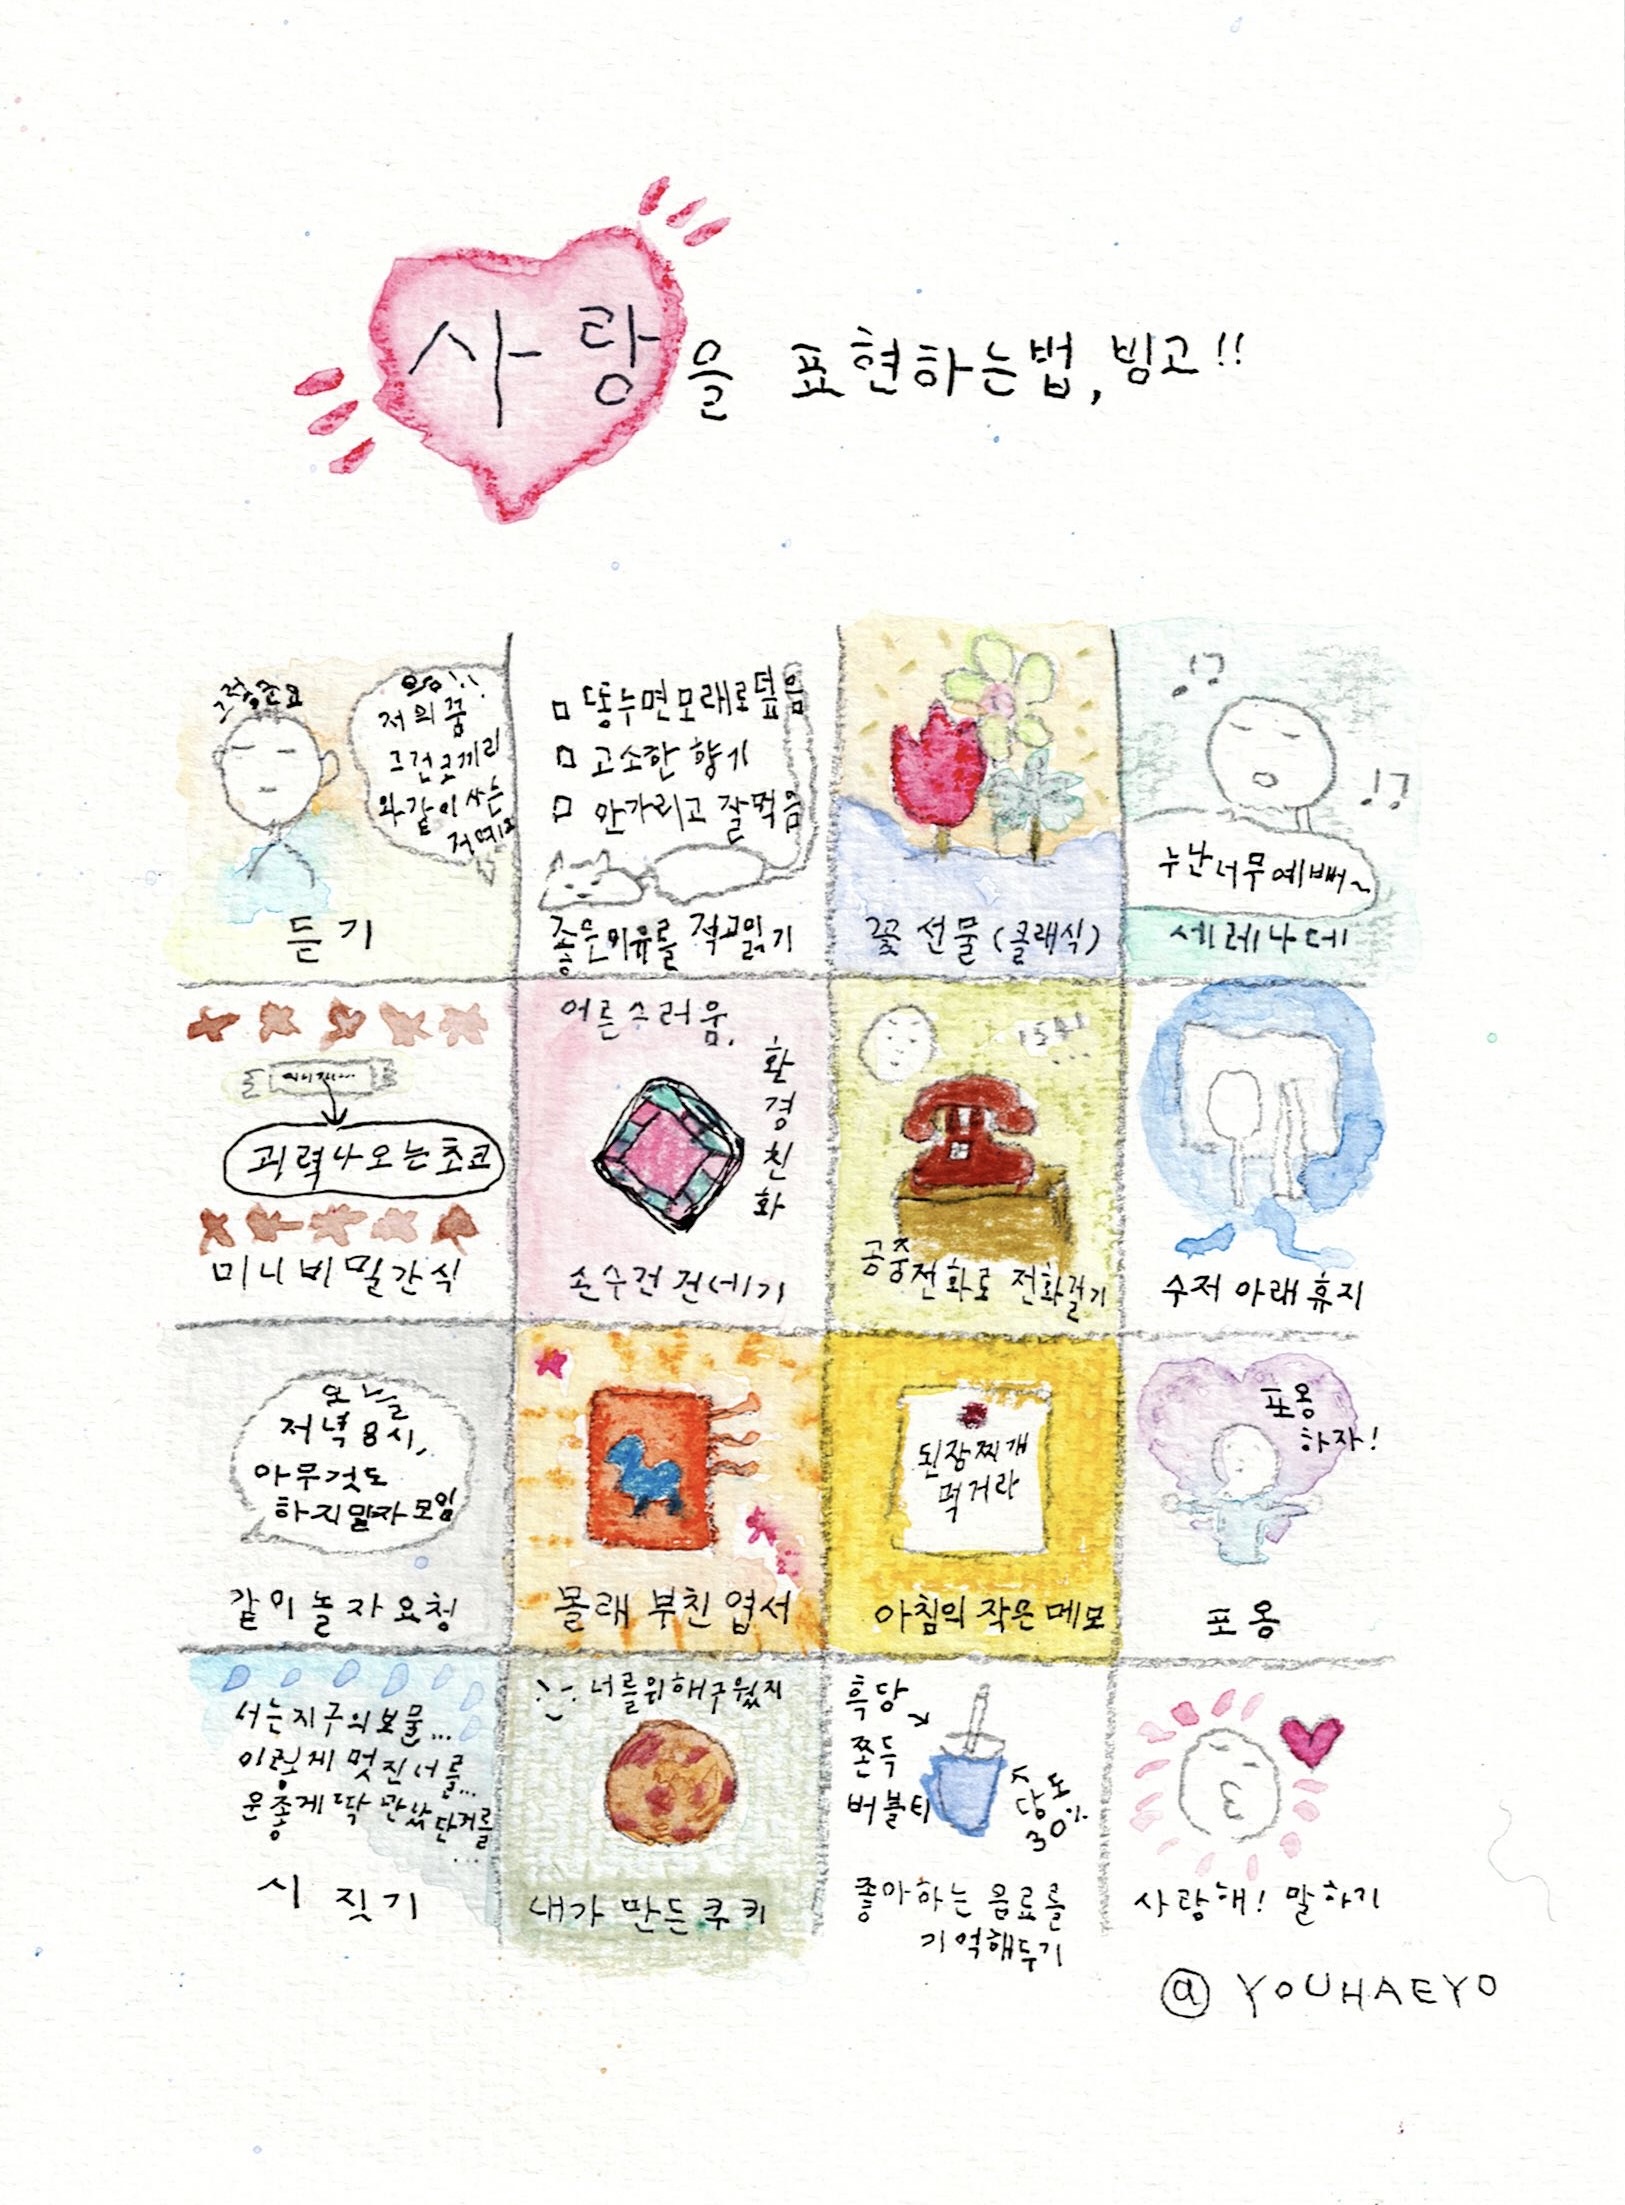 사랑을 표현하는법, 빙고!!
음!!
저의 꿈
그건 코끼리
와같이 사는
거예요
듣기
똥누면모래로덮음
고소한 향기
안가리고 잘먹음
좋은이유를 적고읽기
꽃 선물 (클래식)
누난너무예뻐~
세레나데
괴력나오는초코
미니비밀간식
어른스러움,
환경친화
손수건 건네기
1541
...
공중전화로 전화걸기
수저 아래 휴지
오늘
저녁 8시,
아무것도
하지말자 모임
같이 놀자 요청
몰래 부친 엽서
된장찌개
먹거라
아침의 작은 메모
포옹
하자!
포옹
너는지구의보물...
이렇게 멋진너를...
운좋게 딱 만났단거를
...
시 짓기
너를위해구웠지
내가 만든 쿠키
흑당
쫀득
버블티
당도
30%
좋아하는 음료를
기억해두기
사랑해! 말하기
@YOUHAEYO